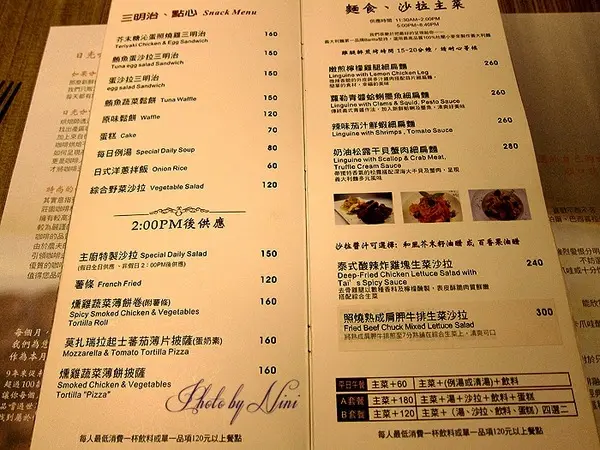 三明治、點心 Snack Menu
芥末糖沁蛋照燒雞三明治 160
Teriyaki Chicken & Egg Sandwich
鮪魚蛋沙拉三明治 150
Tuna egg salad Sandwich
蛋沙拉三明治 130
egg salad Sandwich
鮪魚蔬菜鬆餅 Tuna Waffle 150
原味鬆餅 Waffle 120
蛋糕 Cake 70
每日例湯 Special Daily Soup 80
日式洋蔥拌飯 Onion Rice 60
綜合野菜沙拉 Vegetable Salad 120
2:00PM後供應
主廚特製沙拉 Special Daily Salad 150
(假日全日供應、非假日 2:00PM後供應)
薯條 French Fried 120
燻雞蔬菜薄餅卷(附薯條) 160
Spicy Smoked Chicken & Vegetables
Tortilla Roll
莫扎瑞拉起士蕃茄薄片披薩(蛋奶素) 160
Mozzarella & Tomato Tortilla Pizza
燻雞蔬菜薄餅披薩 160
Smoked Chicken & Vegetables
Tortilla "Pizza"
Photo by Nini
每人最低消費一杯飲料或單一品項120元以上餐點
麵食、沙拉主菜
供應時間 11:30AM~2:00PM
5:00PM~8:40PM
雞腿排烹烤時間 15~20分鐘，請耐心等候
嫩煎檸檬雞腿細扁麵 260
Linguine with Lemon Chicken Leg
羅勒青醬蛤蜊墨魚細扁麵 260
Linguine with Clams & Squid, Pesto Sauce
辣味茄汁鮮蝦細扁麵 260
Linguine with Shrimps , Tomato Sauce
奶油松露干貝蟹肉細扁麵 280
Linguine with Scallop & Crab Meat,
Truffle Cream Sauce
帶獨特香氣的松露搭配深海大干貝及蟹肉，呈現
義大利麵多元風味
沙拉醬汁可選擇：和風芥末籽油醋 或 百香果油醋
泰式酸辣炸雞塊生菜沙拉 240
Deep-Fried Chicken Lettuce Salad with
Tai's Spicy Sauce
去骨雞腿以數種香料及檸檬醃製，表皮酥脆肉質鮮嫩
搭配綜合生菜
照燒熟成肩胛牛排生菜沙拉 300
Fried Beef Chuck Mixed Lettuce Salad
將熟成肩胛牛排煎至7分熟鋪在綜合生菜上，清爽可口
平日午餐 主菜+60 主菜+(例湯或清湯)+飲料
A套餐 主菜+180 主菜+湯+沙拉+飲料+蛋糕
B套餐 主菜+120 主菜+（湯、沙拉、飲料、蛋糕）四選二
每人最低消費一杯飲料或單一品項120元以上餐點